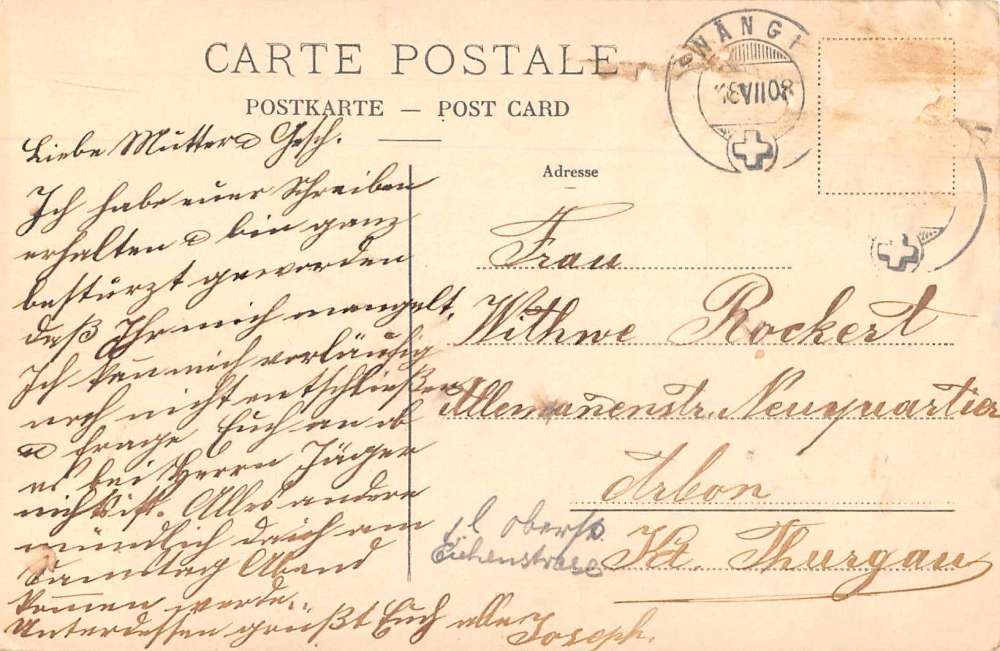 CARTE POSTALE
POSTKARTE — POST CARD
WÄNGI
VII 08
Adresse
Liebe Mutter & Gesch.
Ich habe euer Schreiben
erhalten & bin ganz
bestürzt geworden
daß Ihr mich mangelt.
Ich kan mich vorläufig
noch nicht entschließen
& frage Euch an ob
es bei Herrn Jäger
nichts ist. Alles andere
mündlich da ich am
Samstag Abend
kommen werde.
Unterdessen grüßt Euch alle
Joseph.
Frau
Withwe Rockert
Allemanenstr. Neuquartier
Arbon
Kt. Thurgau
obere
Eichenstrasse